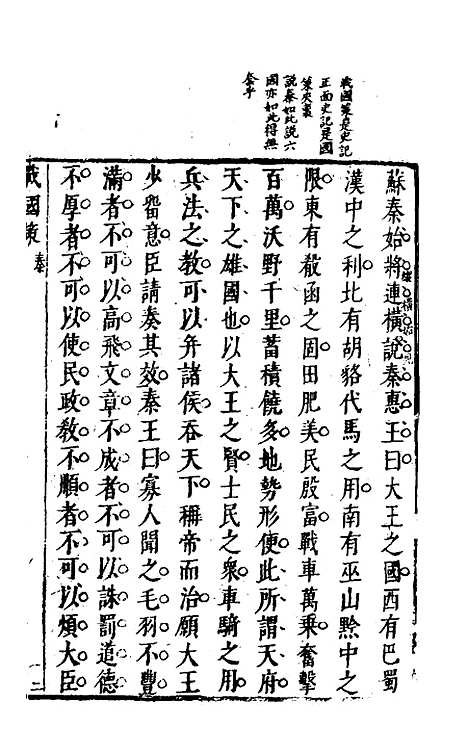 戰國策是史記
正面史記是國
策夾裏
說秦如此說六
國亦如此得無
乎
蘇秦始將連橫說秦惠王曰大王之國西有巴蜀
漢中之利北有胡貉代馬之用南有巫山黔中之
限東有殽函之固田肥美民殷富戰車萬乘奮擊
百萬沃野千里蓄積饒多地勢形便此所謂天府
天下之雄國也以大王之賢士民之衆車騎之用
兵法之教可以并諸侯吞天下稱帝而治願大王
少留意臣請奏其效秦王曰寡人聞之毛羽不豐
滿者不可以高飛文章不成者不可以誅罰道德
不厚者不可以使民政教不順者不可以煩大臣
戰國策 秦 二